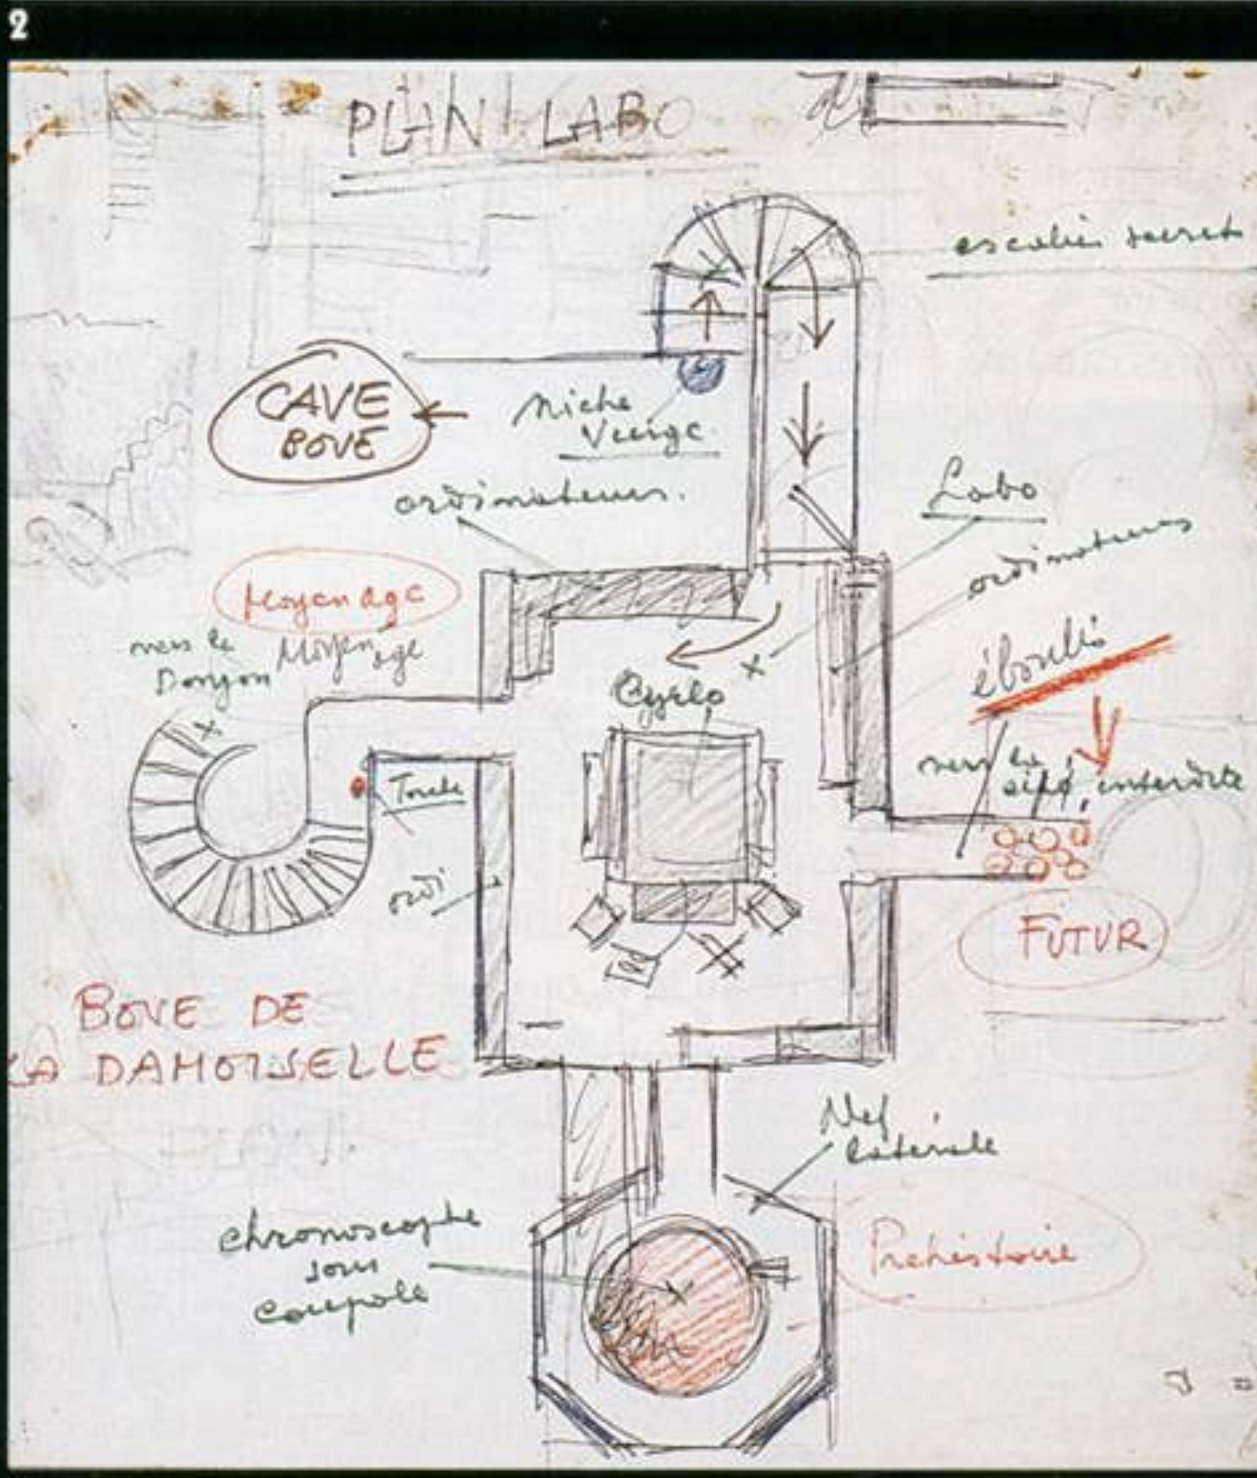 2
PLAN LABO
escalier secret
CAVE
BOVE
Niche
Vierge
ordinateurs.
Labo
ordinateurs
Moyen age
Moyen age
vers le
Donjon
éboulis
Cyclo
vers la
interdite
Torche
ordi
FUTUR
BOVE DE
LA DAMOISELLE
Nef
latérale
chronoscaphe
sous
Coupole
Préhistoire